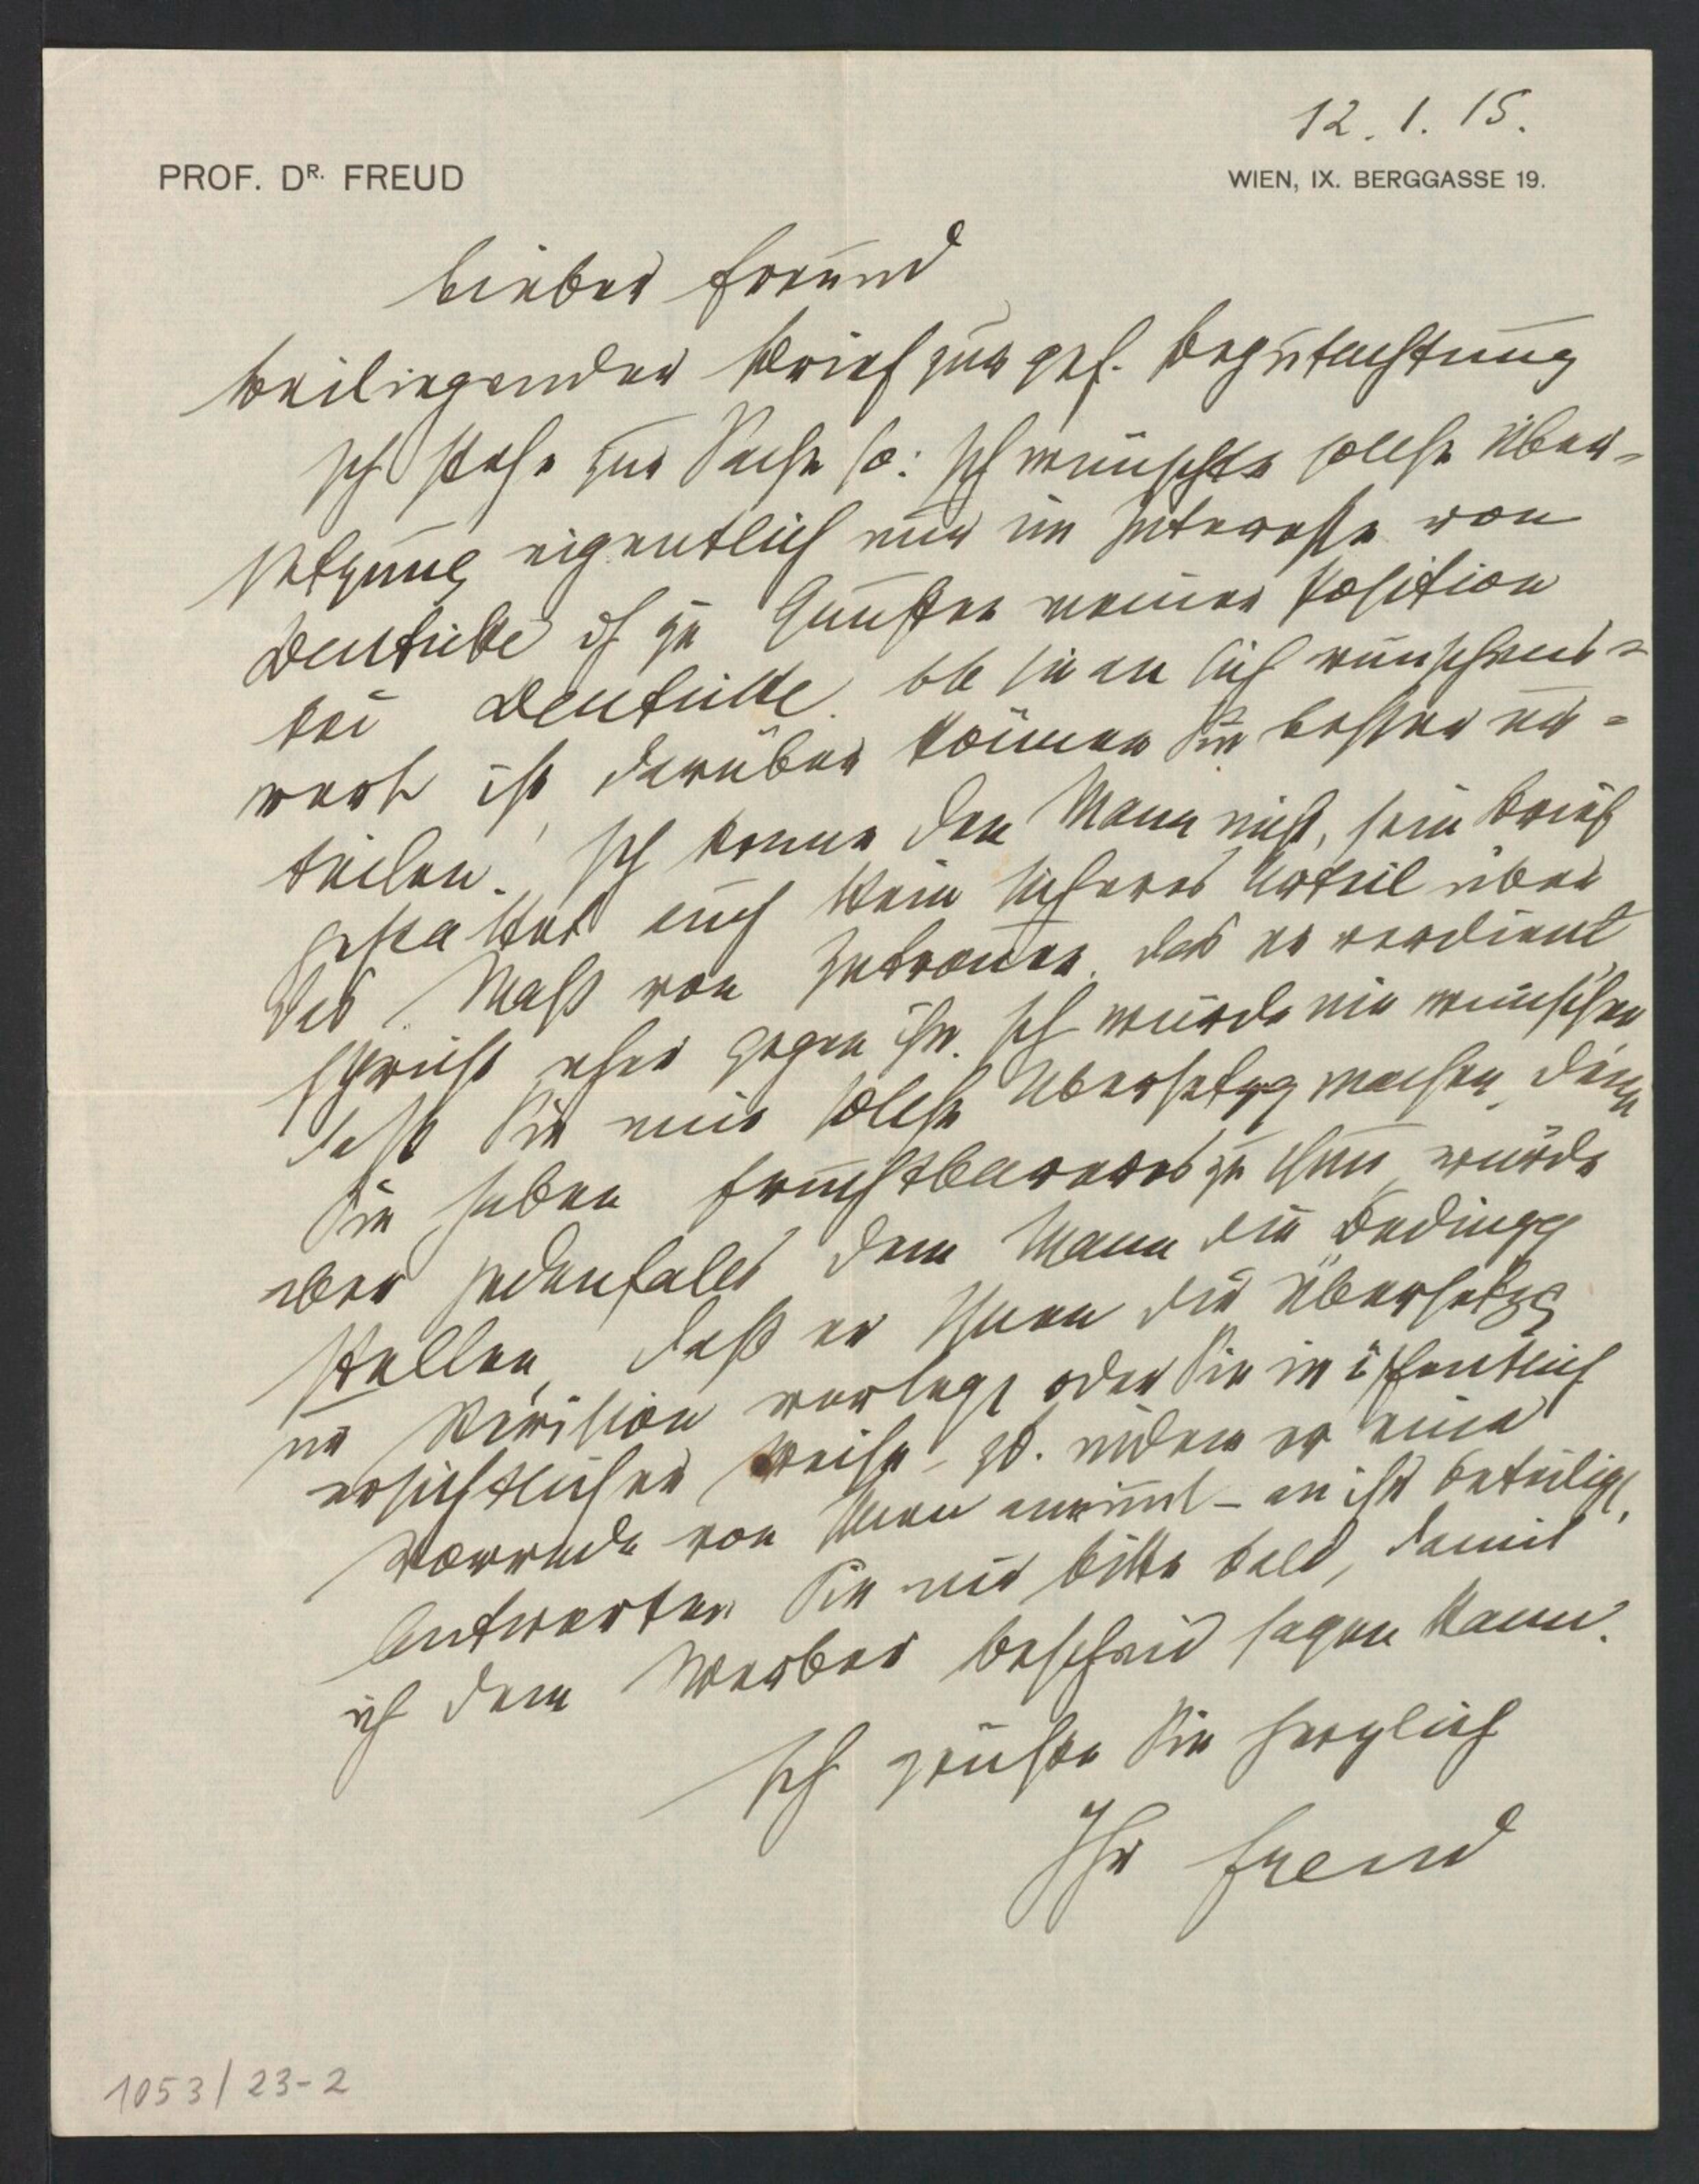 12. 1. 15.
PROF. DR. FREUD
WIEN, IX. BERGGASSE 19.
Lieber Freund
Beiliegender Brief zur gef. Begutachtung
Ich stehe zur Sache so: Ich wünschte solche Über-
setzung eigentlich nur im Interesse von
Deuticke od zu Gunsten meiner Position
bei Deuticke. Ob sie an sich wünschens-
wert ist, darüber können Sie besser ur-
teilen. Ich kenne den Mann nicht, sein Brief
gestattet auch kein sicheres Urteil über
das Maß von Zutrauen, das er verdient,
spricht eher gegen ihn. Ich würde nie wünschen
daß Sie eine solche Übersetzg machen, denn
Sie haben fruchtbareres zu thun, würde
aber jedenfalls dem Mann die Bedingg
stellen, daß er Ihnen die Übersetzg
zur Revision vorlegt oder Sie in öffentlich
ersichtlicher Weise – zB. indem er eine
Vorrede von Ihnen annimmt – an ihr beteiligt.
Antworten Sie mir bitte bald, damit
ich dem Werber Bescheid sagen kann.
Ich grüße Sie herzlich
Ihr Freud
1053/23-2